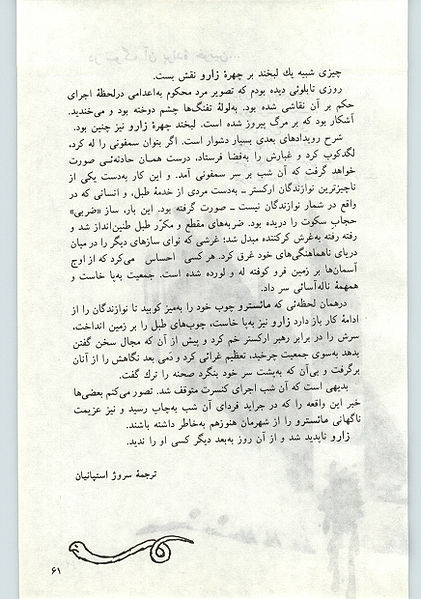 چیزی شبیه یك لبخند بر چهرهٔ زارو نقش بست.
روزی تابلوئی دیده بودم که تصویر مرد محکوم به‌اعدامی درلحظهٔ اجرای
حکم بر آن نقاشی شده بود. به‌لولهٔ تفنگ‌ها چشم دوخته بود و می‌خندید.
آشکار بود که بر مرگ پیروز شده است. لبخند چهرهٔ زارو نیز چنین بود.
شرح رویدادهای بعدی بسیار دشوار است. اگر بتوان سمفونی را له کرد،
لگدکوب کرد و غبارش را به‌فضا فرستاد، درست همـان حادثه‌ئی صورت
خواهد گرفت که آن شب بر سر سمفونی آمد. و این کار به‌دست یکی از
ناچیزترین نوازندگان ارکستر ـ به‌دست مردی از خدمهٔ طبل، و انسانی که در
واقع در شمار نوازندگان نیست ـ صورت گرفته بود. این بار، ساز «ضربی»
حجاب سکوت را دریده بود. ضربه‌های مقطع و مکرّر طبل طنین‌انداز شد و
رفته رفته به‌غرش کرکننده مبدل شد؛ غرشی که نوای سازهای دیگر را در میان
دریای ناهماهنگی‌های خود غرق کرد. هر کسی احساس می‌کرد که از اوج
آسمان‌ها بر زمین فرو کوفته له و لورده شده است. جمعیت به‌پا خاست و
همهمهٔ ناله‌آسائی سر داد.
درهمان لحظه‌ئی که مائسترو چوب خود را به‌میز کوبید تا نوازندگان را از
ادامهٔ کار باز دارد زارو نیز به‌پا خاست، چوب‌های طبل را بر زمین انداخت،
سرش را در برابر رهبر ارکستر خم کرد و پیش از آن که مجال سخن گفتن
بدهد به‌سوی جمعیت چرخید، تعظیم غرائی کرد و دَمی بعد نگاهش را از آنان
برگرفت و بی‌آن که به‌پشت سر خود بنگرد صحنه را ترك گفت.
بدیهی است که آن شب اجرای کنسرت متوقف شد. تصور می‌کنم بعضی‌ها
خبر این واقعه را که در جراید فردای آن شب به‌چاپ رسید و نیز عزیمت
ناگهانی مائسترو را از شهرمان هنوزهم به‌خاطر داشته باشند.
زارو ناپدید شد و از آن روز به‌بعد دیگر کسی او را ندید.
ترجمهٔ سروژ استپانیان
۶۱